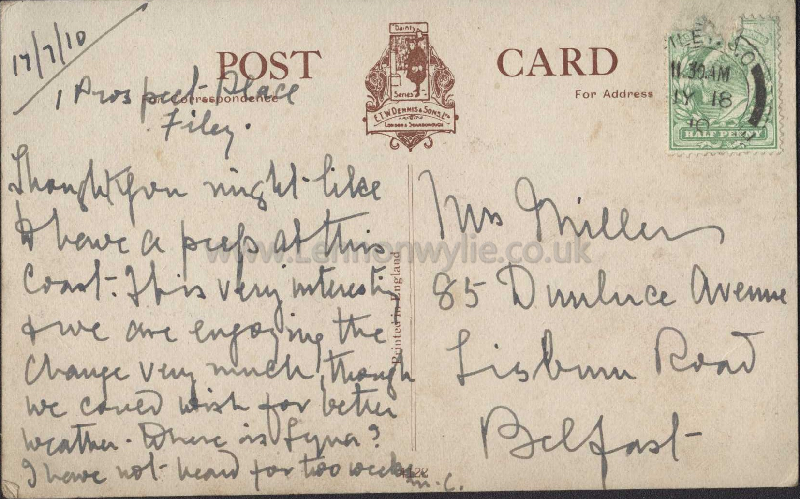 17/7/10
POST CARD
Dainty
Series
E.T.W. DENNIS & SONS, Ld
LONDON & SCARBOROUGH
For Correspondence
For Address
1 Prospect Place
Filey.
Thought you might like
to have a peep at this
Coast. It is very interesting
& we are enjoying the
change very much, though
we could wish for better
weather. Where is Lyna?
I have not heard for two weeks
M.C.
Mrs Miller
85 Dunluce Avenue
Lisburn Road
Belfast
11.30AM
JY 18
10
HALF PENNY
Printed in England
www.Lennonwylie.co.uk